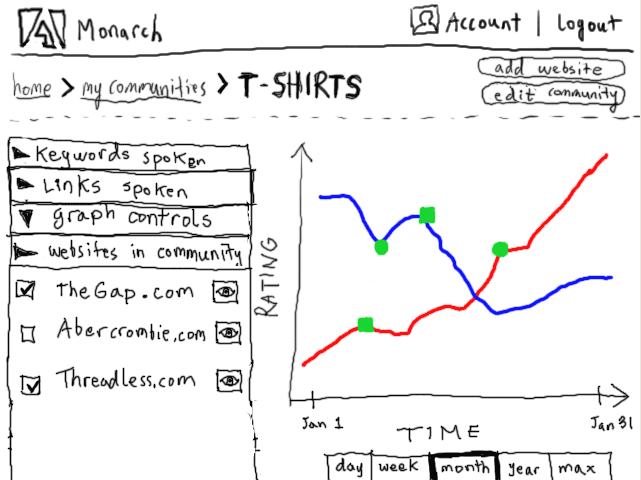 Monarch
Account | Logout
home > my communities > T-SHIRTS
add website
edit community
Keywords spoken
Links spoken
graph controls
websites in community
TheGap.com
Abercrombie.com
Threadless.com
RATING
Jan 1
Jan 31
TIME
day week month year max